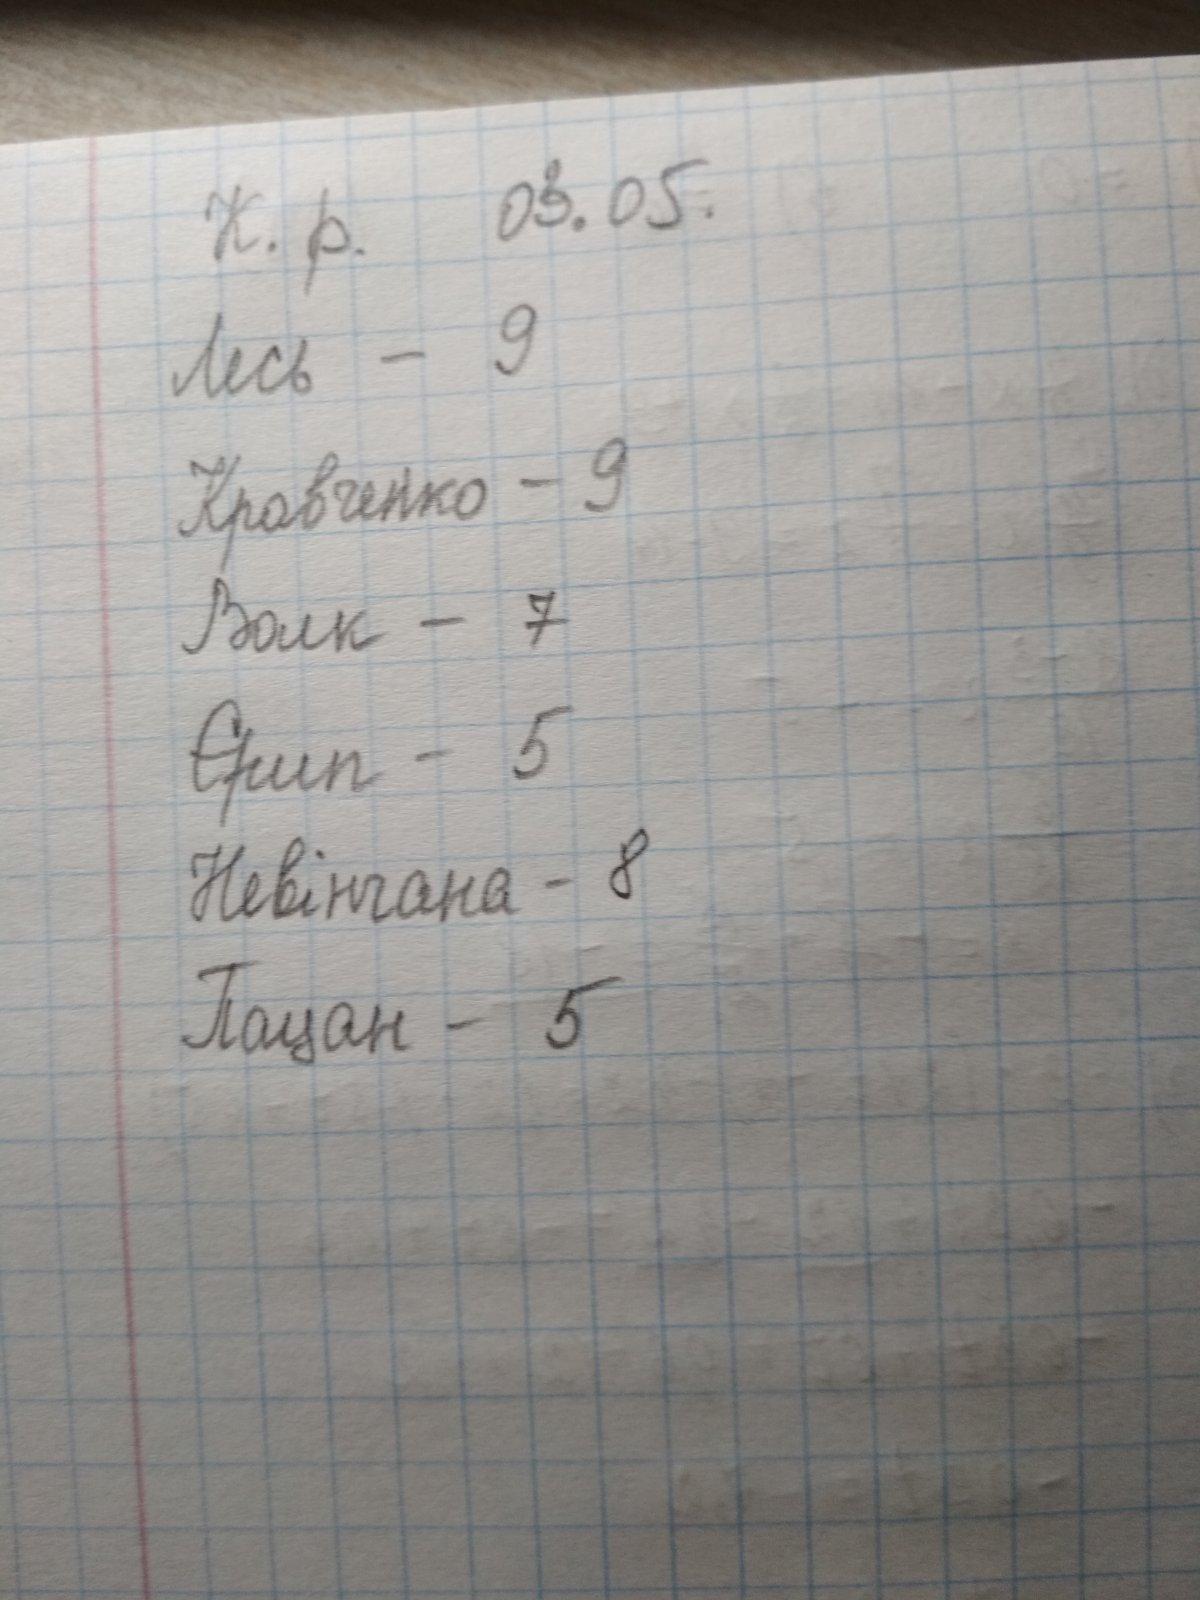 К. р. 03.05.
Лесь - 9
Кравченко - 9
Волк - 7
- 5
Невінчана - 8
Пацан - 5